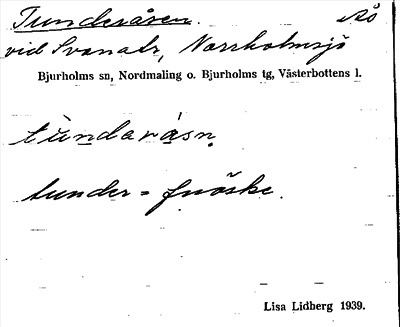 Tunderåsen. Ås
vid Svanatr, Norrholmsjö
Bjurholms sn, Nordmaling o. Bjurholms tg, Västerbottens l.
tùndaråsn.
tunder = fnöske.
Lisa Lidberg 1939.